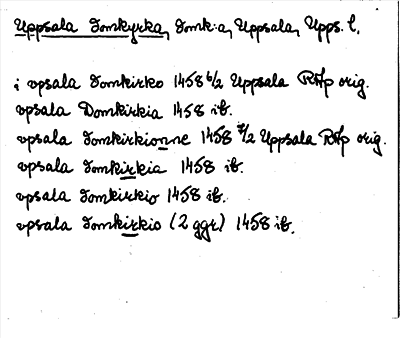 Uppsala Domkyrka, Domk:a, Uppsala, Upps. l.
i vpsala Domkirko 1458 6/2 Uppsala RAp orig.
vpsala Domkirkia 1458 ib.
vpsala Domkirkionne 1458 7/2 Uppsala RAp orig.
vpsala Domkirkia 1458 ib.
vpsala Domkirkio 1458 ib.
vpsala Domkirkio (2 ggr) 1458 ib.